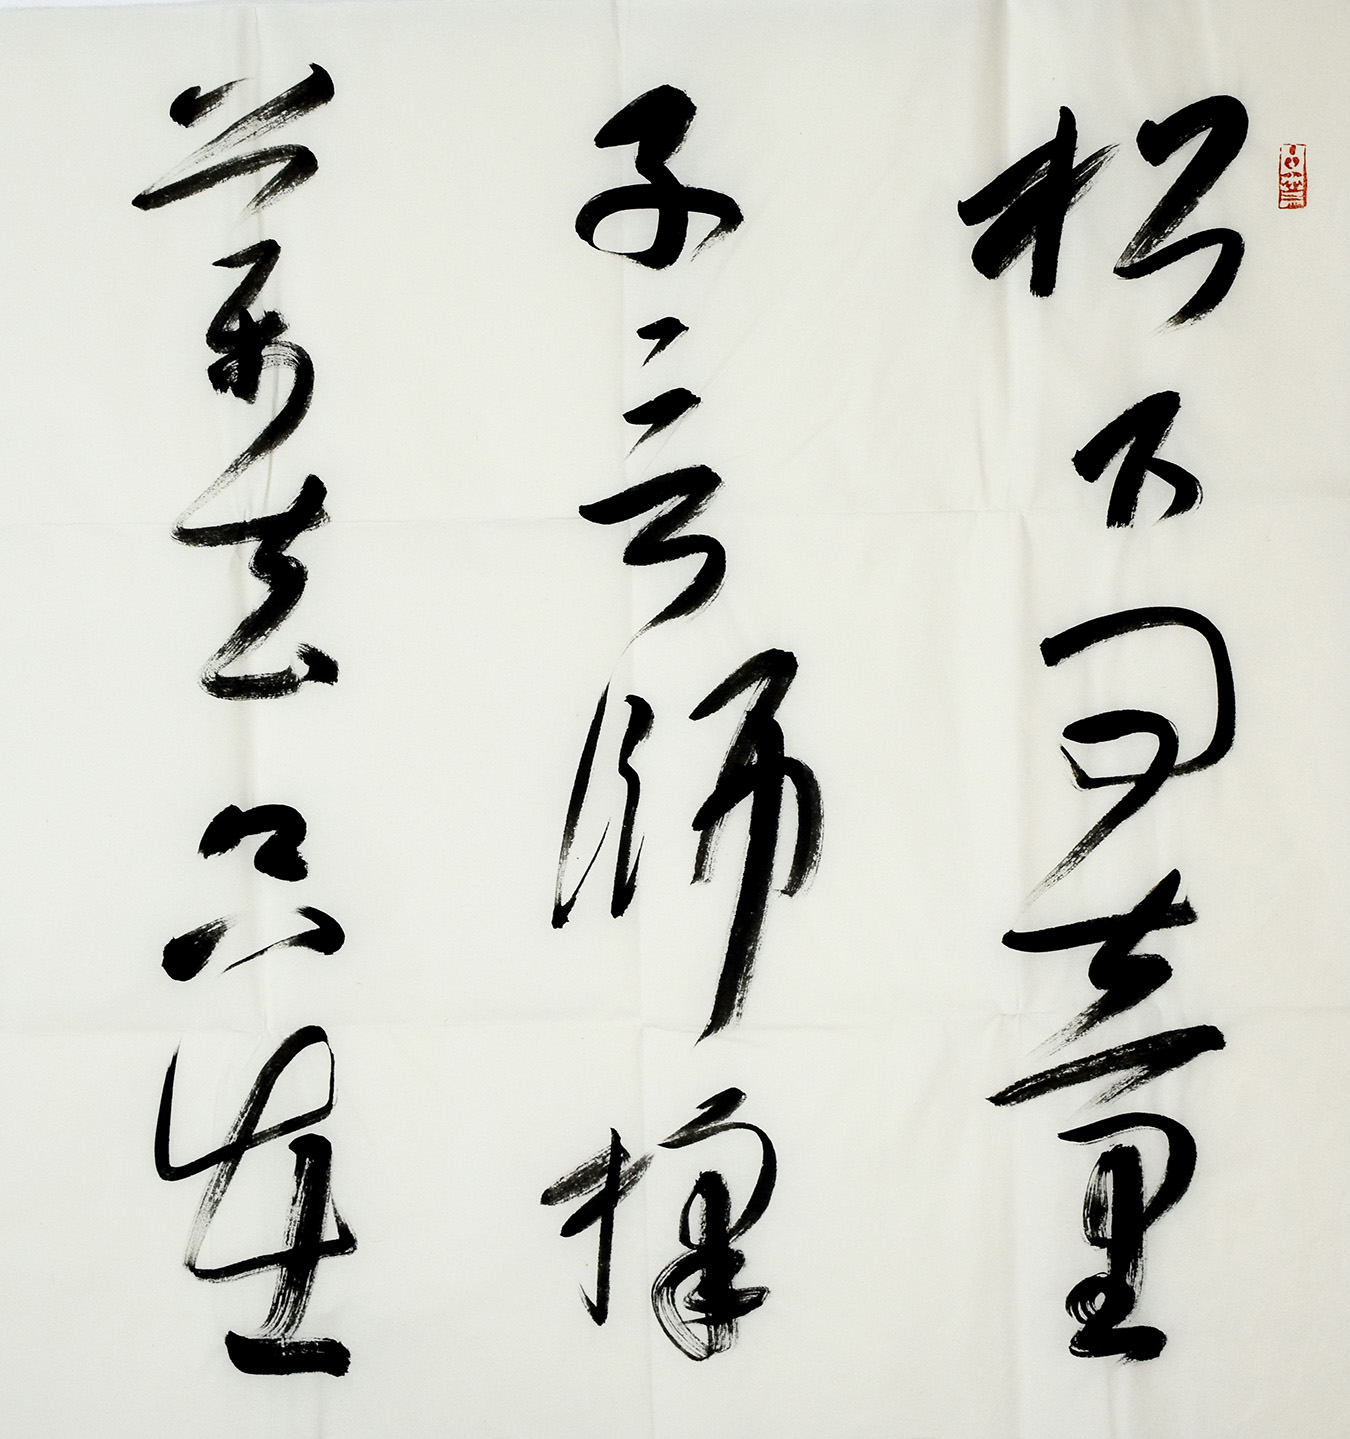 松下问童
子言师採
药去只在